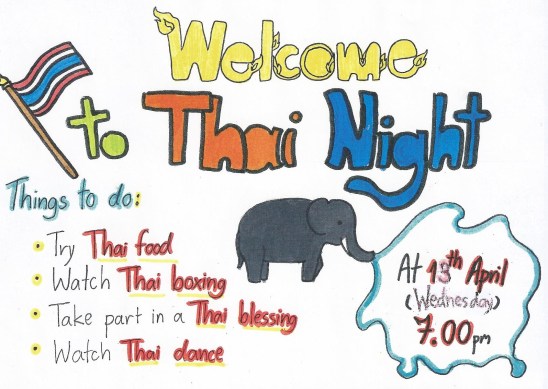 Welcome
to Thai Night
Things to do:
Try Thai food
Watch Thai boxing
Take part in a Thai blessing
Watch Thai dance
At 13th April
(Wednesday)
7.00pm